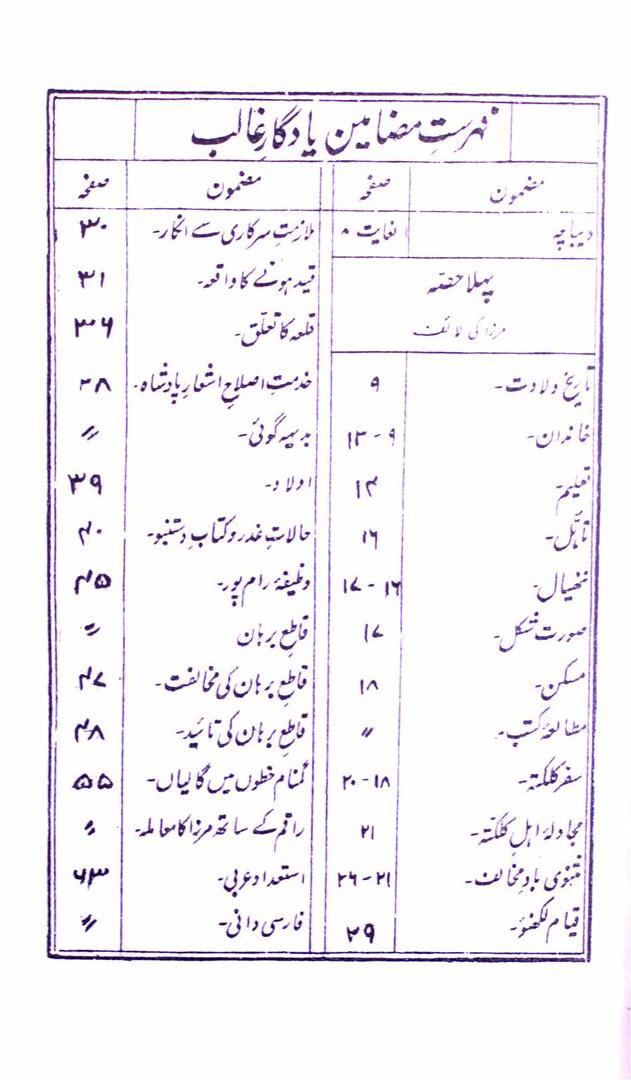 فہرستِ مضامین یادگارِ غالب
مضمون صفحہ
دیباچہ لغایت ۸
پہلا حصّہ
مرزا کی لائف
تاریخ ولادت۔ ۹
خاندان۔ ۹-۱۳
تعلیم۔ ۱۳
تاہّل۔ ۱۶
ننھیال۔ ۱۶-۱۷
صورت شکل۔ ۱۷
مسکن۔ ۱۸
مطالعۂ کتب۔ 〃
سفر کلکتہ۔ ۱۸-۲۰
مجادلۂ اہلِ کلکتہ۔ ۲۱
مثنوی بادِ مخالف۔ ۲۱-۲۶
قیام لکھنؤ۔ ۲۹
مضمون صفحہ
ملازمتِ سرکاری سے انکار۔ ۳۰
قید ہونے کا واقعہ۔ ۳۱
قلعہ کا تعلّق۔ ۳۶
خدمتِ اصلاحِ اشعارِ پادشاہ۔ ۳۸
بدیہہ گوئی۔ 〃
اولاد۔ ۳۹
حالاتِ غدر و کتابِ دستنبو۔ ۴۰
وظیفۂ رام پور۔ ۴۵
قاطعِ برہان 〃
قاطعِ برہان کی مخالفت۔ ۴۷
قاطعِ برہان کی تائید۔ ۴۸
گمنام خطوں میں گالیاں۔ ۵۵
راقم کے ساتھ مرزا کا معاملہ۔ 〃
استعدادِ عربی۔ ۶۳
فارسی دانی۔ 〃